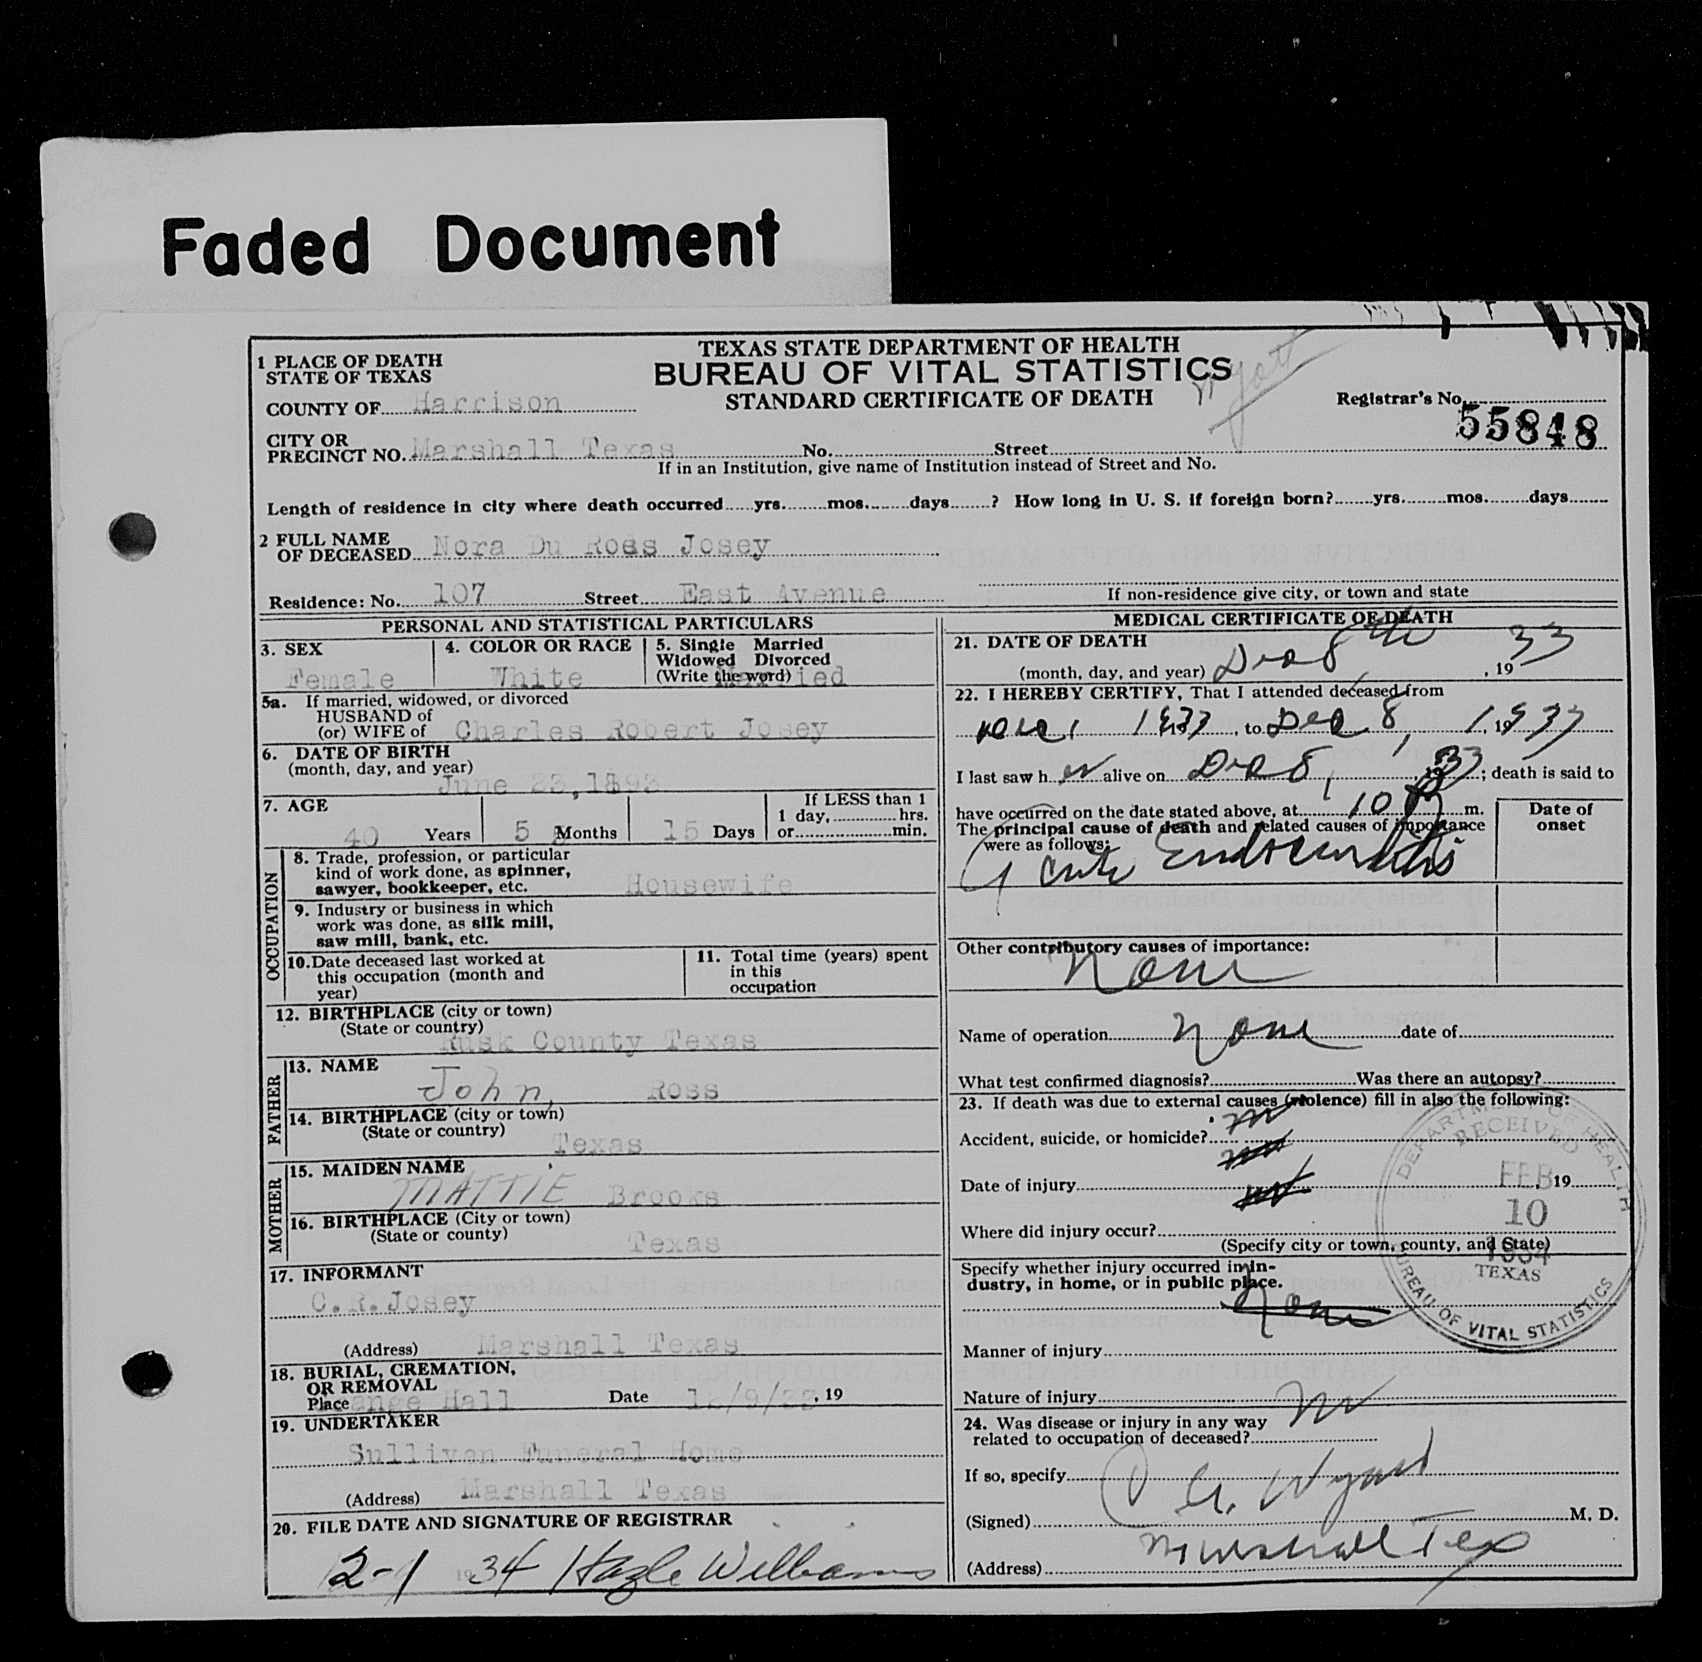 Faded Document
TEXAS STATE DEPARTMENT OF HEALTH
BUREAU OF VITAL STATISTICS
STANDARD CERTIFICATE OF DEATH
Wyatt
1 PLACE OF DEATH
STATE OF TEXAS
COUNTY OF Harrison
Registrar's No.
55848
CITY OR
PRECINCT NO. Marshall Texas No. Street
If in an Institution, give name of Institution instead of Street and No.
Length of residence in city where death occurred yrs. mos. days ? How long in U. S. if foreign born? yrs. mos. days
2 FULL NAME
OF DECEASED Nora Du Ross Josey
Residence: No. 107 Street East Avenue
If non-residence give city, or town and state
PERSONAL AND STATISTICAL PARTICULARS
3. SEX
Female
4. COLOR OR RACE
White
5. Single Married
Widowed Divorced
(Write the word) Married
5a. If married, widowed, or divorced
HUSBAND of
(or) WIFE of Charles Robert Josey
6. DATE OF BIRTH
(month, day, and year)
June 23, 1893
7. AGE
40 Years 5 Months 15 Days
If LESS than 1
1 day, hrs.
or min.
OCCUPATION
8. Trade, profession, or particular
kind of work done, as spinner,
sawyer, bookkeeper, etc. Housewife
9. Industry or business in which
work was done, as silk mill,
saw mill, bank, etc.
10. Date deceased last worked at
this occupation (month and
year)
11. Total time (years) spent
in this
occupation
12. BIRTHPLACE (city or town)
(State or country)
Rusk County Texas
FATHER
13. NAME
John Ross
14. BIRTHPLACE (city or town)
(State or country)
Texas
MOTHER
15. MAIDEN NAME
MATTIE Brooks
16. BIRTHPLACE (City or town)
(State or county)
Texas
17. INFORMANT
C.R.Josey
(Address) Marshall Texas
18. BURIAL, CREMATION,
OR REMOVAL
Place Grange Hall Date 12/9/33, 19
19. UNDERTAKER
Sullivan Funeral Home
(Address) Marshall Texas
20. FILE DATE AND SIGNATURE OF REGISTRAR
2-1 1934 Hazle Williams
MEDICAL CERTIFICATE OF DEATH
21. DATE OF DEATH
(month, day, and year) Dec 8 th, 1933
22. I HEREBY CERTIFY, That I attended deceased from
Dec 1 1933, to Dec 8, 1933
I last saw her alive on Dec 8, 1933; death is said to
have occurred on the date stated above, at 10 P m.
The principal cause of death and related causes of importance
were as follows:
Acute Endocarditis
Date of
onset
Other contributory causes of importance:
None
Name of operation None date of
What test confirmed diagnosis? Was there an autopsy?
23. If death was due to external causes (violence) fill in also the following:
Accident, suicide, or homicide? no
Date of injury 19
Where did injury occur?
(Specify city or town, county, and State)
Specify whether injury occurred in in-
dustry, in home, or in public place.
None
Manner of injury
Nature of injury
24. Was disease or injury in any way
related to occupation of deceased? no
If so, specify
(Signed) Wyatt M. D.
(Address) Marshall Tex
DEPARTMENT OF HEALTH
RECEIVED
FEB
10
1934
TEXAS
BUREAU OF VITAL STATISTICS